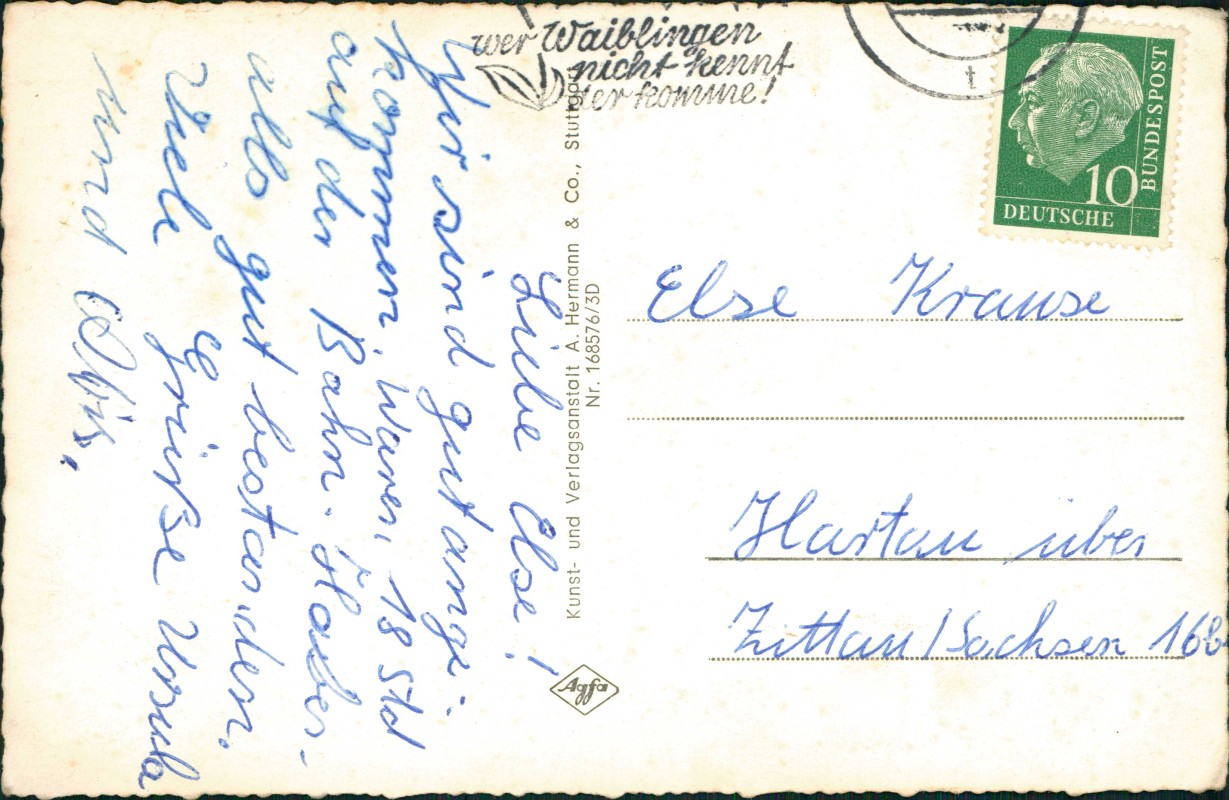 Liebe Else!
Wir sind gut ange-
kommen, waren 18 Std
auf der Bahn. Haben
alls gut bestanden.
Viele Grüße Ursula
und
wer Waiblingen
nicht kennt
der komme!
t
DEUTSCHE
BUNDESPOST
10
Kunst- und Verlagsanstalt A. Hermann & Co., Stuttgart
Nr. 168576/3D
Agfa
Else Krause
Hartau über
Zittau/Sachsen 16b